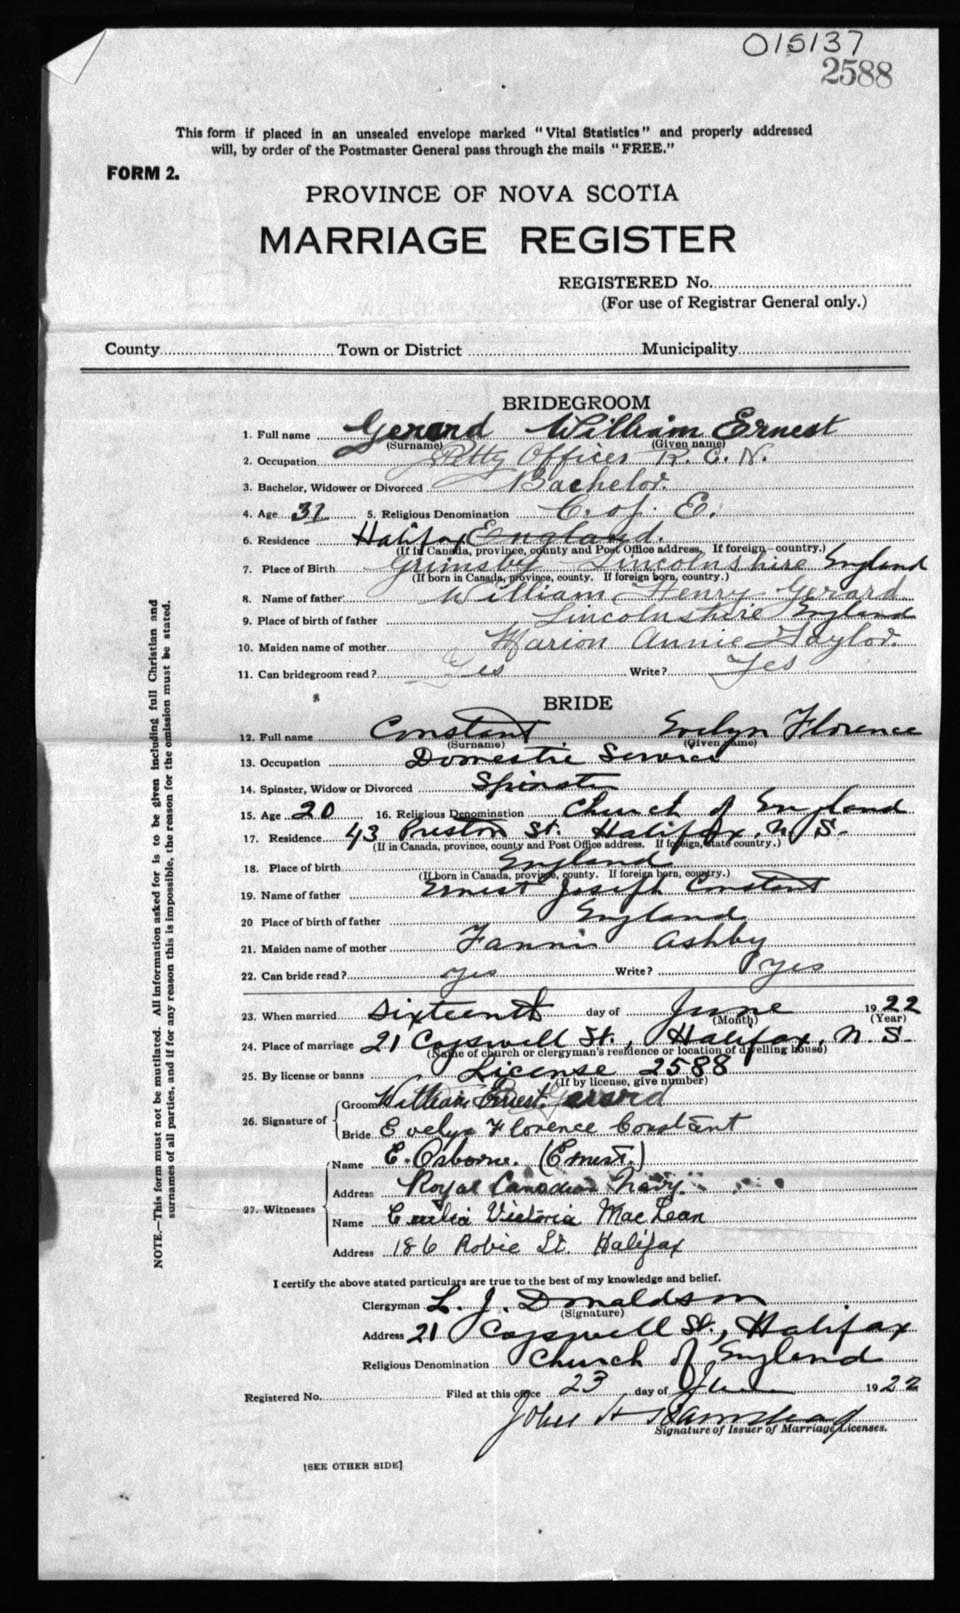 015137
2588
This form if placed in an unsealed envelope marked "Vital Statistics" and properly addressed
will, by order of the Postmaster General pass through the mails "FREE."
FORM 2.
PROVINCE OF NOVA SCOTIA
MARRIAGE REGISTER
REGISTERED No.
(For use of Registrar General only.)
County Town or District Municipality
BRIDEGROOM
1. Full name Gerard William Ernest
(Surname) (Given name)
2. Occupation Petty Officer R. C. N.
3. Bachelor, Widower or Divorced Bachelor.
4. Age 31 5. Religious Denomination C. of. E.
6. Residence Halifax England.
(If in Canada, province, county and Post Office address. If foreign—country.)
7. Place of Birth Grimsby Lincolnshire England
(If born in Canada, province, county. If foreign born, country.)
8. Name of father William Henry Gerard
9. Place of birth of father Lincolnshire England
10. Maiden name of mother Marion Annie Taylor.
11. Can bridegroom read? Yes Write? Yes
BRIDE
12. Full name Constant Evelyn Florence
(Surname) (Given name)
13. Occupation Domestic Service
14. Spinster, Widow or Divorced Spinster
15. Age 20 16. Religious Denomination Church of England
17. Residence 43 Preston St. Halifax, N S.
(If in Canada, province, county and Post Office address. If foreign, state country.)
18. Place of birth England
(If born in Canada, province, county. If foreign born, country.)
19. Name of father Ernest Joseph Constant
20 Place of birth of father England
21. Maiden name of mother Fannie Ashby
22. Can bride read? yes Write? yes
23. When married Sixteenth day of June 1922
(Month) (Year)
24. Place of marriage 21 Cogswell St., Halifax, N. S.
(Name of church or clergyman's residence or location of dwelling house)
25. By license or banns License 2588
(If by license, give number)
26. Signature of
Groom William Ernest. Gerard
Bride Evelyn Florence Constant
27. Witnesses
Name E. Osborne. (Ernest.)
Address Royal Canadian Navy.
Name Cecilia Victoria MacLean
Address 186 Robie St. Halifax
I certify the above stated particulars are true to the best of my knowledge and belief.
Clergyman L. J. Donaldson
(Signature)
Address 21 Cogswell St., Halifax
Religious Denomination Church of England
Registered No. Filed at this office 23 day of June 1922
John H
Signature of Issuer of Marriage Licenses.
[SEE OTHER SIDE]
NOTE.—This form must not be mutilated. All information asked for is to be given including full Christian and
surnames of all parties, and if for any reason this is impossible, the reason for the omission must be stated.